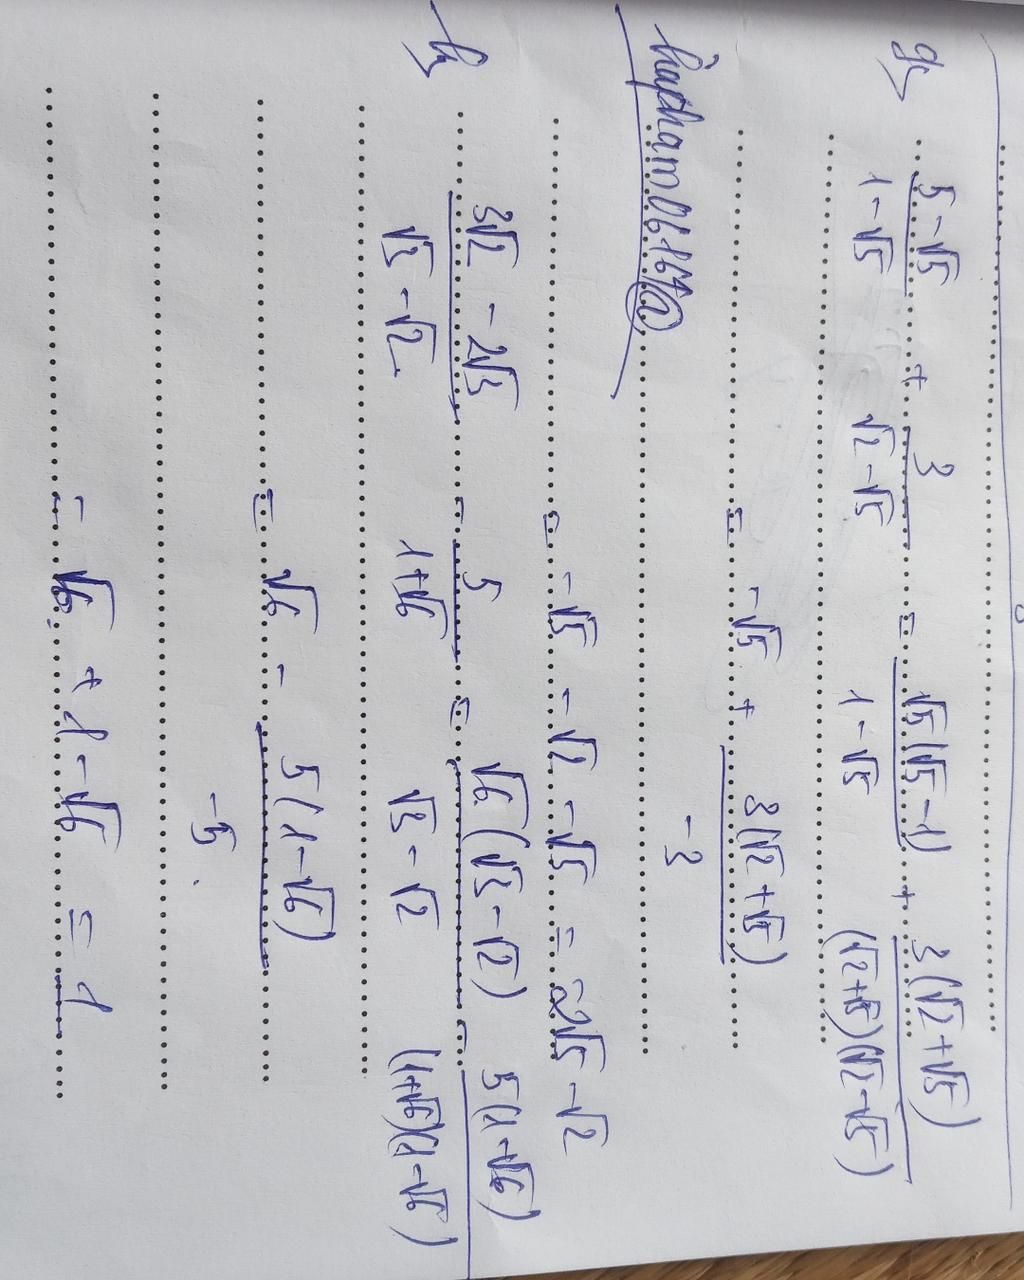 g, (5 - √5)/(1 - √5) + 3/(√2 - √5) = √5(√5 - 1)/(1 - √5) + 3(√2 + √5)/((√2 + √5)(√2 - √5))
= -√5 + 3(√2 + √5)/-3
= -√5 - √2 - √5 = -2√5 - √2
h, (3√2 - 2√3)/(√3 - √2) - 5/(1 + √6) = √6(√3 - √2)/(√3 - √2) - 5(1 - √6)/((1 + √6)(1 - √6))
= √6 - 5(1 - √6)/-5
= √6 + 1 - √6 = 1